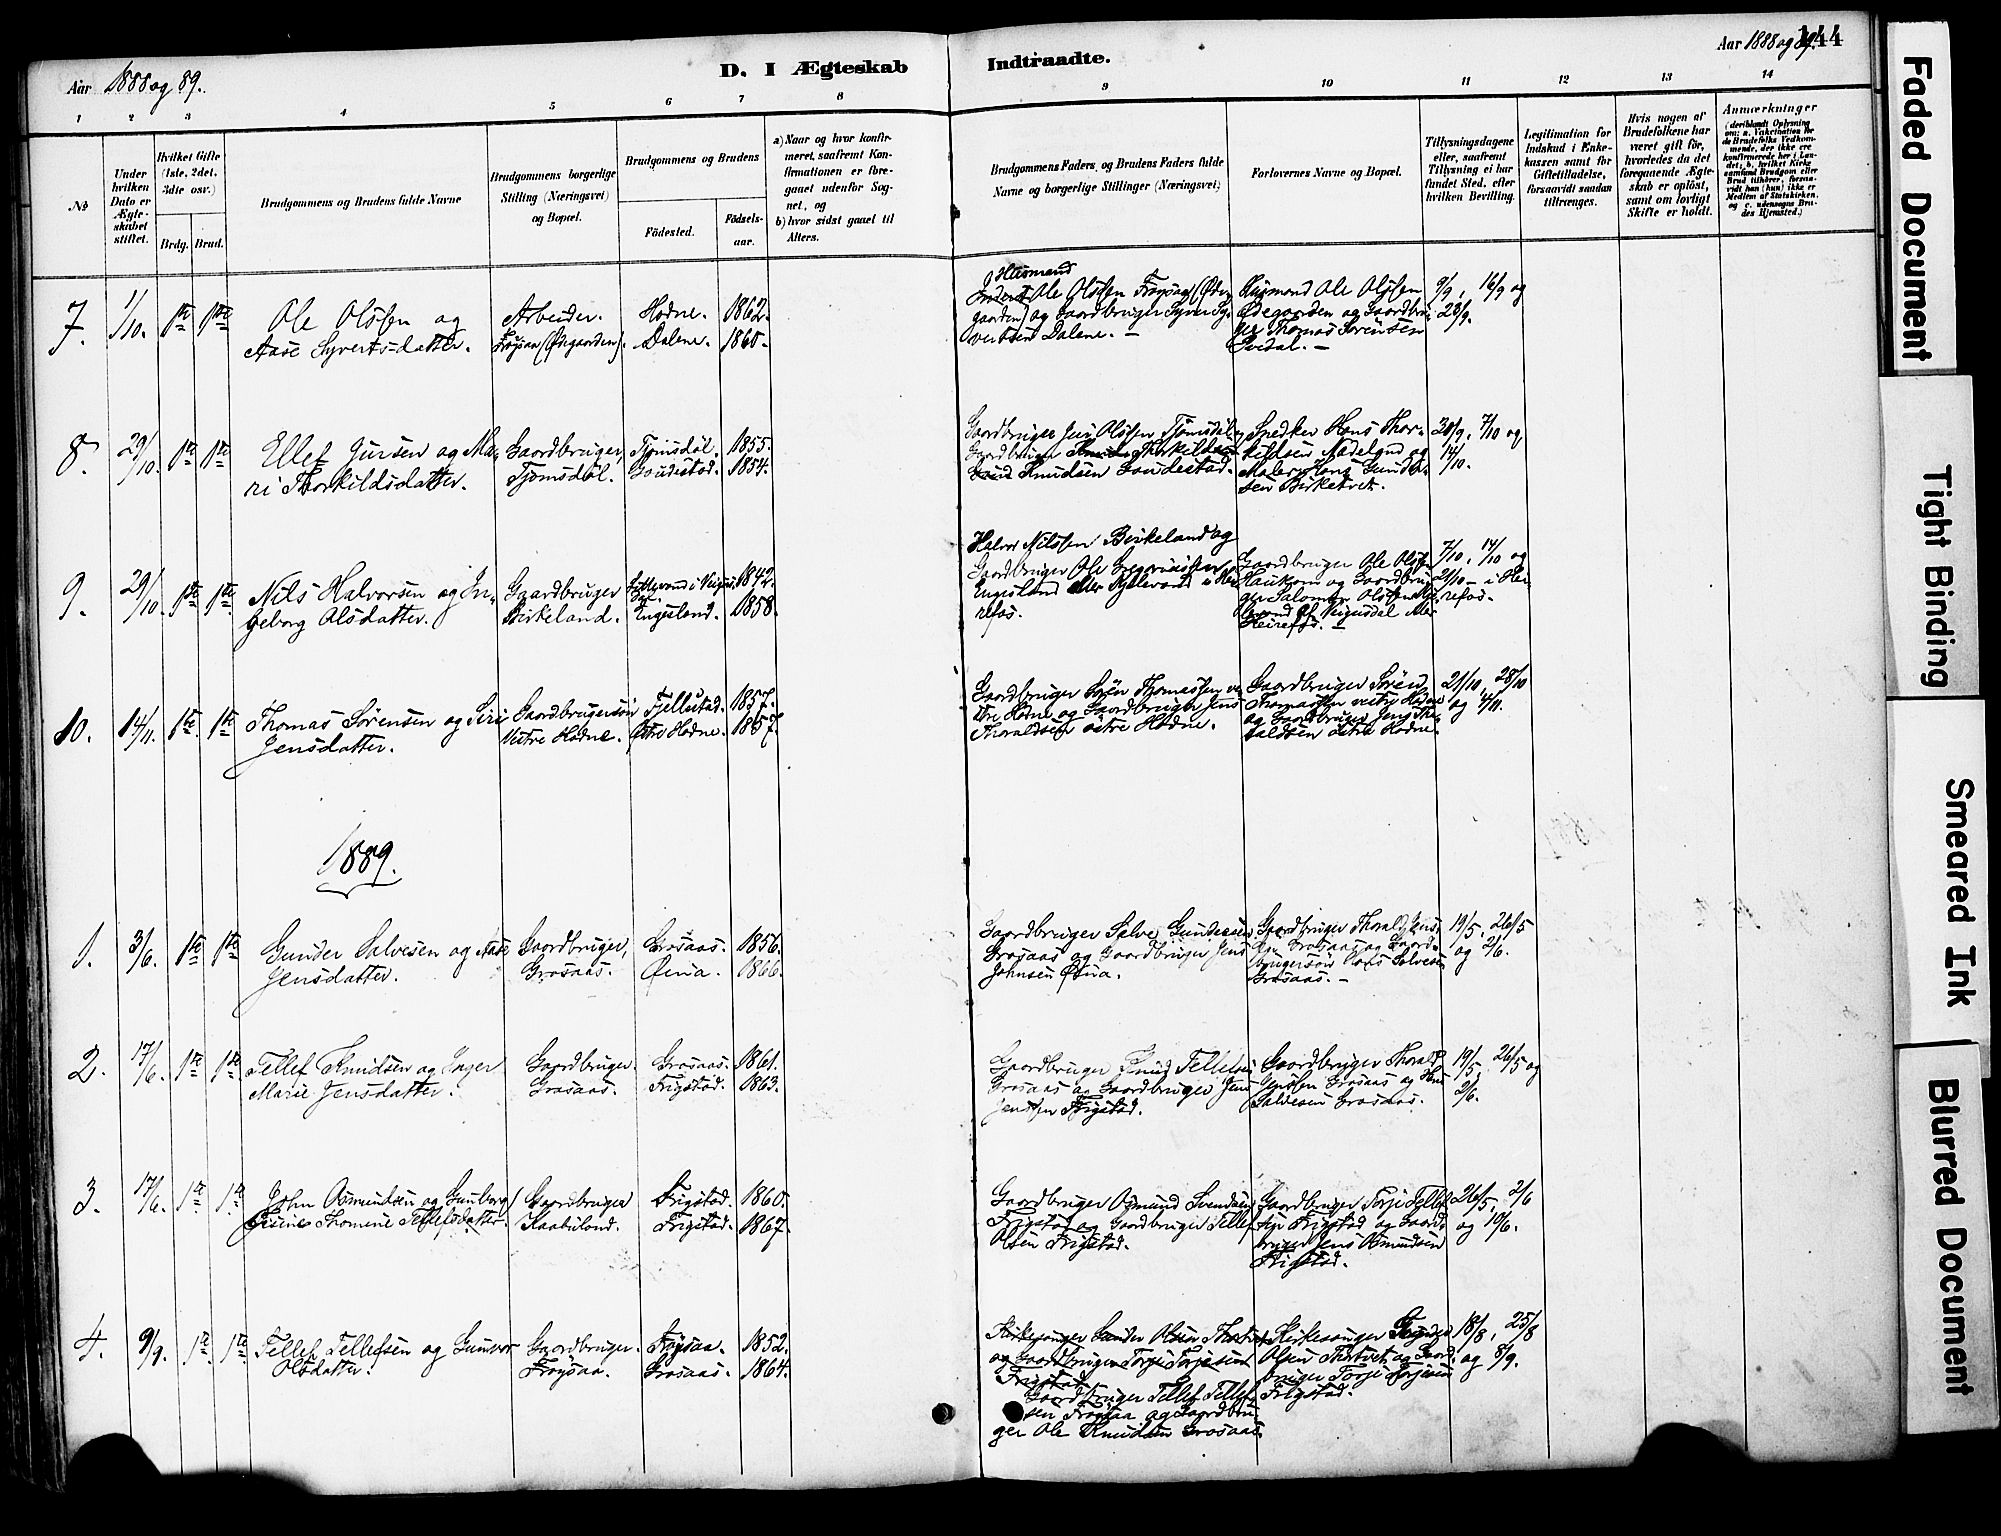 Aar 1888 og 89.
D. I Ægteskab
Indtraadte.
Aar 1888 og 89.
144
1 2 3 4 5 6 7 8
9 10 11 12 13 14
№
Under hvilken Dato er Ægteskabet stiftet.
Hvilket Gifte (1ste, 2det, 3die osv.)
Brdg. Brud.
Brudgommens og Brudens fulde Navne
Brudgommens borgerlige Stilling (Næringsvei) og Bopæl.
Brudgommens og Brudens
Födested.
Födsels-aar.
a) Naar og hvor konfirmeret, saafremt Konfirmationen er foregaaet udenfor Sognet, og
b) hvor sidst gaaet til Alters.
Brudgommens Faders, og Brudens Faders fulde Navne og borgerlige Stillinger (Næringsvei)
Forlovernes Navne og Bopæl.
Tillysningsdagene eller, saafremt Tillysning ei har fundet Sted, efter hvilken Bevilling.
Legitimation for Indskud i Enkekassen samt for Giftetilladelse, forsaavidt saadan tiltrænges.
Hvis nogen af Brudefolkene har været gift før, hvorledes da det foregaaende Ægteskab er oplöst, samt om lovligt Skifte er holdt.
Anmærkninger
7. 1/10. 1ste 1ste
Ole Olsen og
Aase Syvertsdatter.
Arbeider.
Frøysaa (Ødegaarden).
Hodne.
Dalene.
1862.
1860.
Husmand
Inderst Ole Olsen Frøysaa (Øde-
gaarden) og Gaardbruger Syvert Sy-
vertsen Dalene. —
Husmand Ole Olsen
Ødegaarden og Gaardbru-
ger Thomas Sørensen
Kvidal. —
9/9, 16/9 og
23/9.
8. 29/10. 1ste 1ste
Ellef Jursen og Ma-
ri Thorkildsdatter.
Gaardbruger,
Tjomsdøl.
Tjomsdøl.
Goudestad.
1855.
1854.
Gaardbruger Juri Olsen Tjomsdal og
Gaardbruger Thorkild
Knudsen Goudestad.
Snedker Hans Thor-
kildsen Nadeland og
Maler Hans Gunder-
sen Birketvet.
30/9, 7/10 og
14/10.
9. 29/10. 1ste 1ste
Nils Halvorsen og In-
geborg Olsdatter.
Gaardbruger
Birkeland.
Engesland.
1842.
1858.
Halvor Nilsen Birkeland og
Gaardbruger Ole Gregoriussen
Engesland
refos.
Gaardbruger Ole Olsen
Haukom og Gaardbru-
ger Salomon Olsen
Heirefos. —
7/10, 14/10 og
21/10 — i Hei-
refos.
10. 14/11. 1ste 1ste
Thomas Sørensen og Siri
Jensdatter.
Gaardbrugersøn
Vestre Hodne.
Fjellestad.
Østre Hodne.
1857.
1857.
Gaardbruger Sørèn Thomassen ve-
stre Hodne og Gaardbruger Jens
Thoraldsen østre Hodne.
Gaardbruger Sørèn
Thomassen vestre Hodne
og Gaardbruger Jens Tho-
raldsen østre Hodne.
21/10, 28/10
og 4/11.
1889.
1. 3/6. 1ste 1ste
Gunder Salvesen og Aase
Jensdatter.
Gaardbruger,
Grosaas.
Grosaas.
Øina.
1856.
1866.
Gaardbruger Salve Gundersen
Grosaas og Gaardbruger Jens
Johnsen Øina.
Gaardbruger Thorald Jens-
sen Grosaas og Gaard-
brugersøn Hans Salvesen
Grosaas. —
19/5, 26/5
og 2/6.
2. 17/6. 1ste 1ste
Tellef Knudsen og Inger
Marie Jensdatter.
Gaardbruger
Grosaas.
Grosaas.
Frigstad.
1861.
1863.
Gaardbruger Knud Tellefsen
Grosaas og Gaardbruger Jens
Jenssen Frigstad.
Gaardbruger Thorald
Jenssen Grosaas og Hans
Salvesen Grosaas.
19/5, 26/5 og
2/6.
3. 17/6. 1ste 1ste
John Osmundsen og Gunborg
Thomine Tellefsdatter.
Gaardbruger
Kaabuland.
Frigstad.
Frigstad.
1860.
1867.
Gaardbruger Osmund Svendsen
Frigstad og Gaardbruger Tellef
Olsen Frigstad.
Gaardbruger Torje Tellef-
sen Frigstad og Gaard-
bruger Jens Osmundsen
Frigstad.
26/5, 2/6
og 10/6.
4. 9/9. 1ste 1ste
Tellef Tellefsen og Gunvor
Olsdatter.
Gaardbruger.
Frøysaa.
Frøysaa.
Grosaas.
1852.
1864.
Kirkesanger Gunder Olsen Thortvet
og Gaardbruger Torje Torjesen
Frigstad
Gaardbruger Tellef Tellef-
sen Frøysaa og Gaardbru-
ger Ole Knudsen Grosaas.
Kirkesanger Gunder
Olsen Thortvet og Gaard-
bruger Torje Torjesen
Frigstad.
18/8, 25/8
og 8/9.
Faded Document
Tight Binding
Smeared Ink
Blurred Document